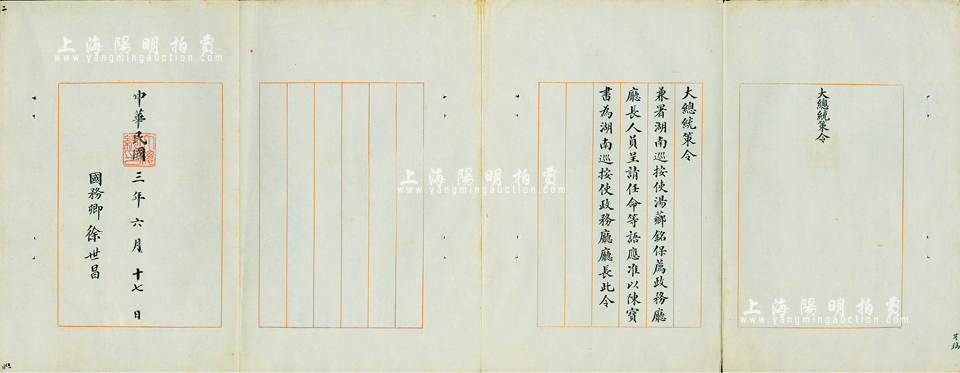 大總統策令
大總統策令
兼署湖南巡按使湯薌銘保薦政務廳
廳長人員呈請任命等語應准以陳寶
書為湖南巡按使政務廳廳長此令
中華民國三年六月十七日
國務卿徐世昌
上海陽明拍賣
www.yangmingauction.com
上海陽明拍賣
www.yangmingauction.com
上海陽明拍賣
www.yangmingauction.com